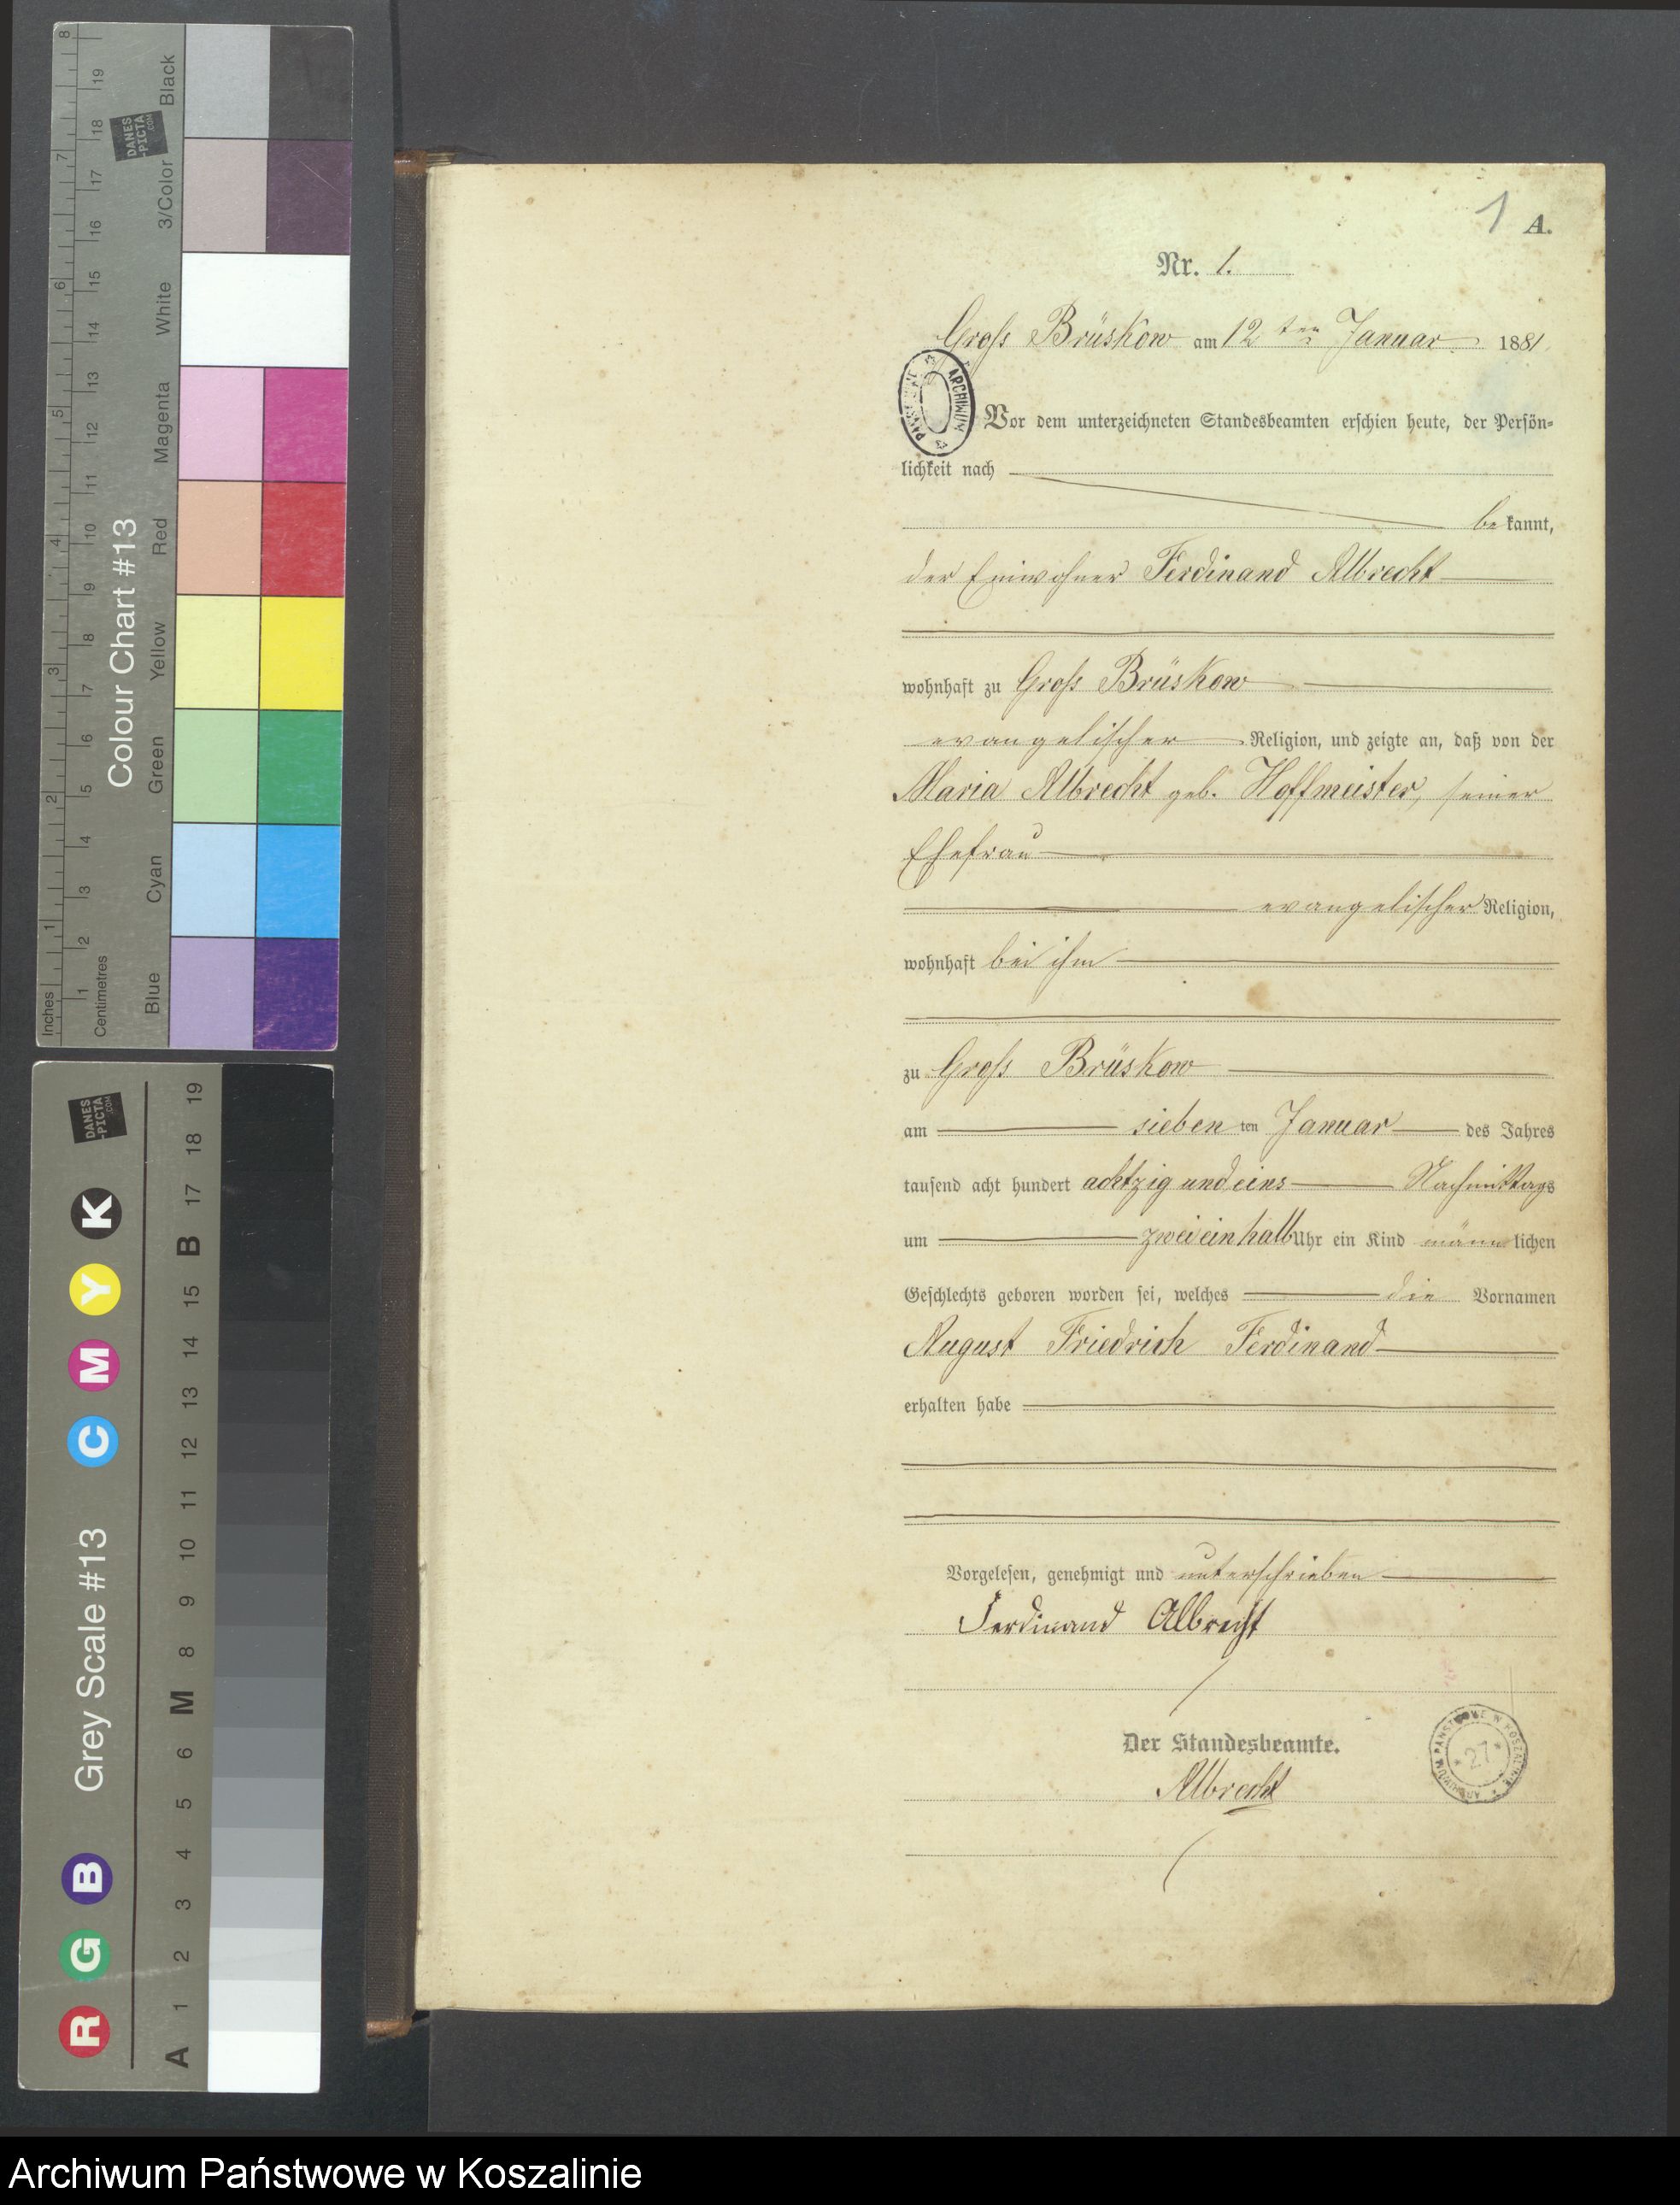 1 A.
Nr. 1.
Groß Brüskow am 12ten Januar 1881
Vor dem unterzeichneten Standesbeamten erschien heute, der Persön-
lichkeit nach
bekannt,
der Einwohner Ferdinand Albrecht
wohnhaft zu Groß Brüskow
evangelischer Religion, und zeigte an, daß von der
Maria Albrecht geb. Hoffmeister, seiner
Ehefrau
evangelischer Religion,
wohnhaft bei ihm
zu Groß Brüskow
am siebenten Januar des Jahres
tausend acht hundert achtzig und eins Nachmittags
um zweieinhalb Uhr ein Kind männlichen
Geschlechts geboren worden sei, welches die Vornamen
August Friedrich Ferdinand
erhalten habe
Vorgelesen, genehmigt und unterschrieben
Ferdinand Albrecht
Der Standesbeamte.
Albrecht
ARCHIWUM PAŃSTWOWE W KOSZALINIE
27
Colour Chart #13
Blue Cyan Green Yellow Red Magenta White 3/Color Black
Inches 1 2 3 4 5 6 7 8
Centimetres 1 2 3 4 5 6 7 8 9 10 11 12 13 14 15 16 17 18 19
DANES
-PICTA
.COM
Grey Scale #13
R G B C M Y K
A 1 2 3 4 5 6 M 8 9 10 11 12 13 14 15 B 17 18 19
DANES
-PICTA
.COM
Archiwum Państwowe w Koszalinie